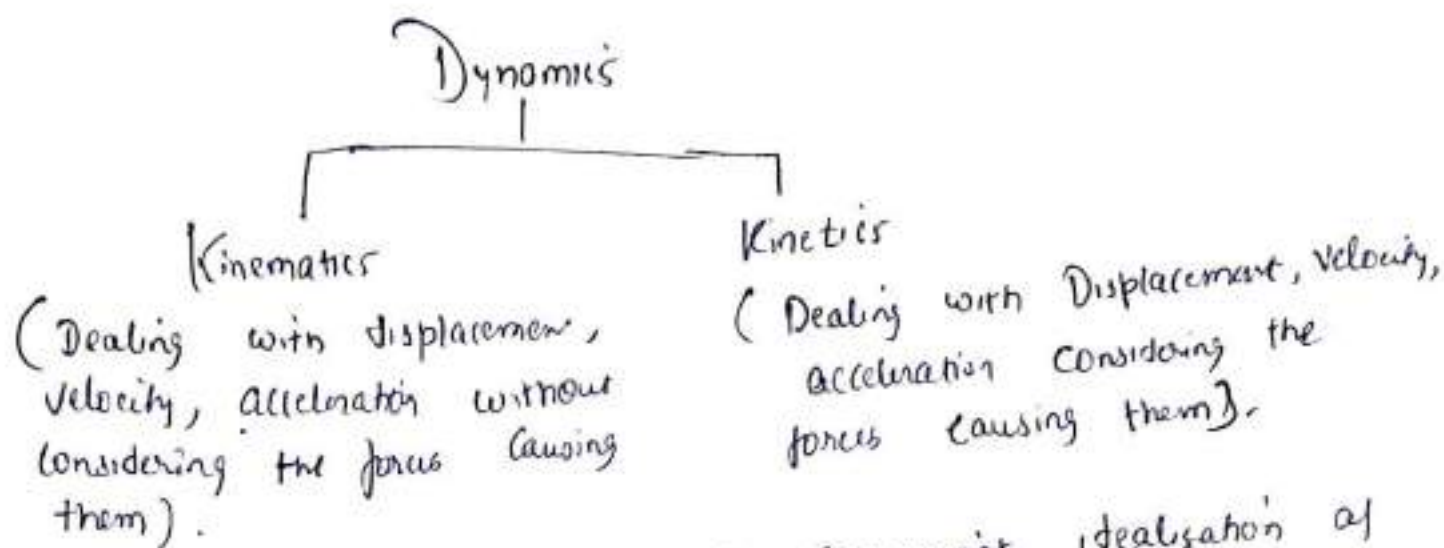 Dynamics
Kinematics
(Dealing with displacemen,
velocity, acceleration without
considering the forces causing
them).
Kinetics
(Dealing with Displacement, velocity,
acceleration considering the
forces causing them).
idealisation of